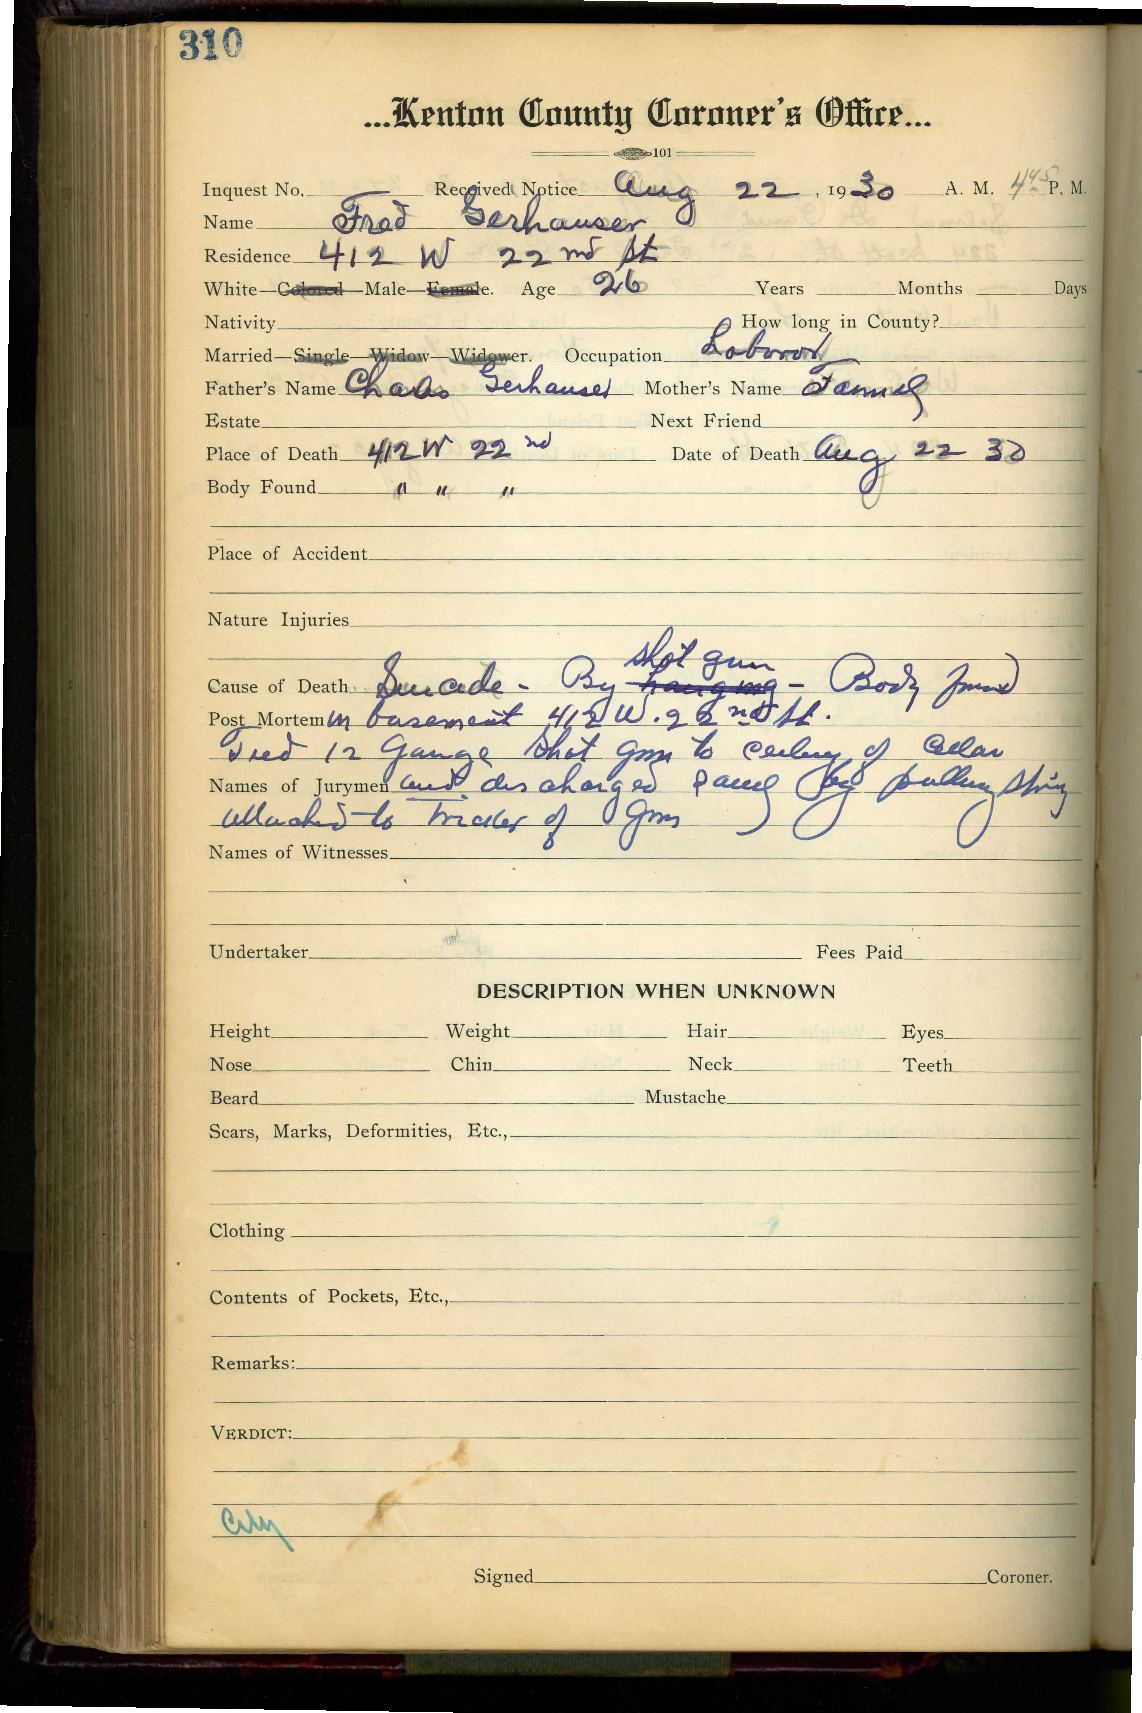 310
...Kenton County Coroner's Office...
101
Inquest No. Received Notice Aug 22, 1930 A. M. 4 45 P. M.
Name Fred Gerhauser
Residence 412 W 22nd St
White—Colored—Male—Female. Age 26 Years Months Days
Nativity How long in County?
Married—Single—Widow—Widower. Occupation Laborer
Father's Name Charles Gerhauser Mother's Name
Estate Next Friend
Place of Death 412 W 22nd Date of Death Aug 22 30
Body Found " " "
Place of Accident
Nature Injuries
shot gun
Cause of Death Suicide - By hanging - Body found
Post Mortem in basement 412 W. 22nd St.
Tied 12 Gauge Shot Gun to ceiling of Cellar
Names of Jurymen and discharged same by pulling string
attached to tricker of Gun
Names of Witnesses
Undertaker Fees Paid
DESCRIPTION WHEN UNKNOWN
Height Weight Hair Eyes
Nose Chin Neck Teeth
Beard Mustache
Scars, Marks, Deformities, Etc.,
Clothing
Contents of Pockets, Etc.,
Remarks:
VERDICT:
City
Signed Coroner.